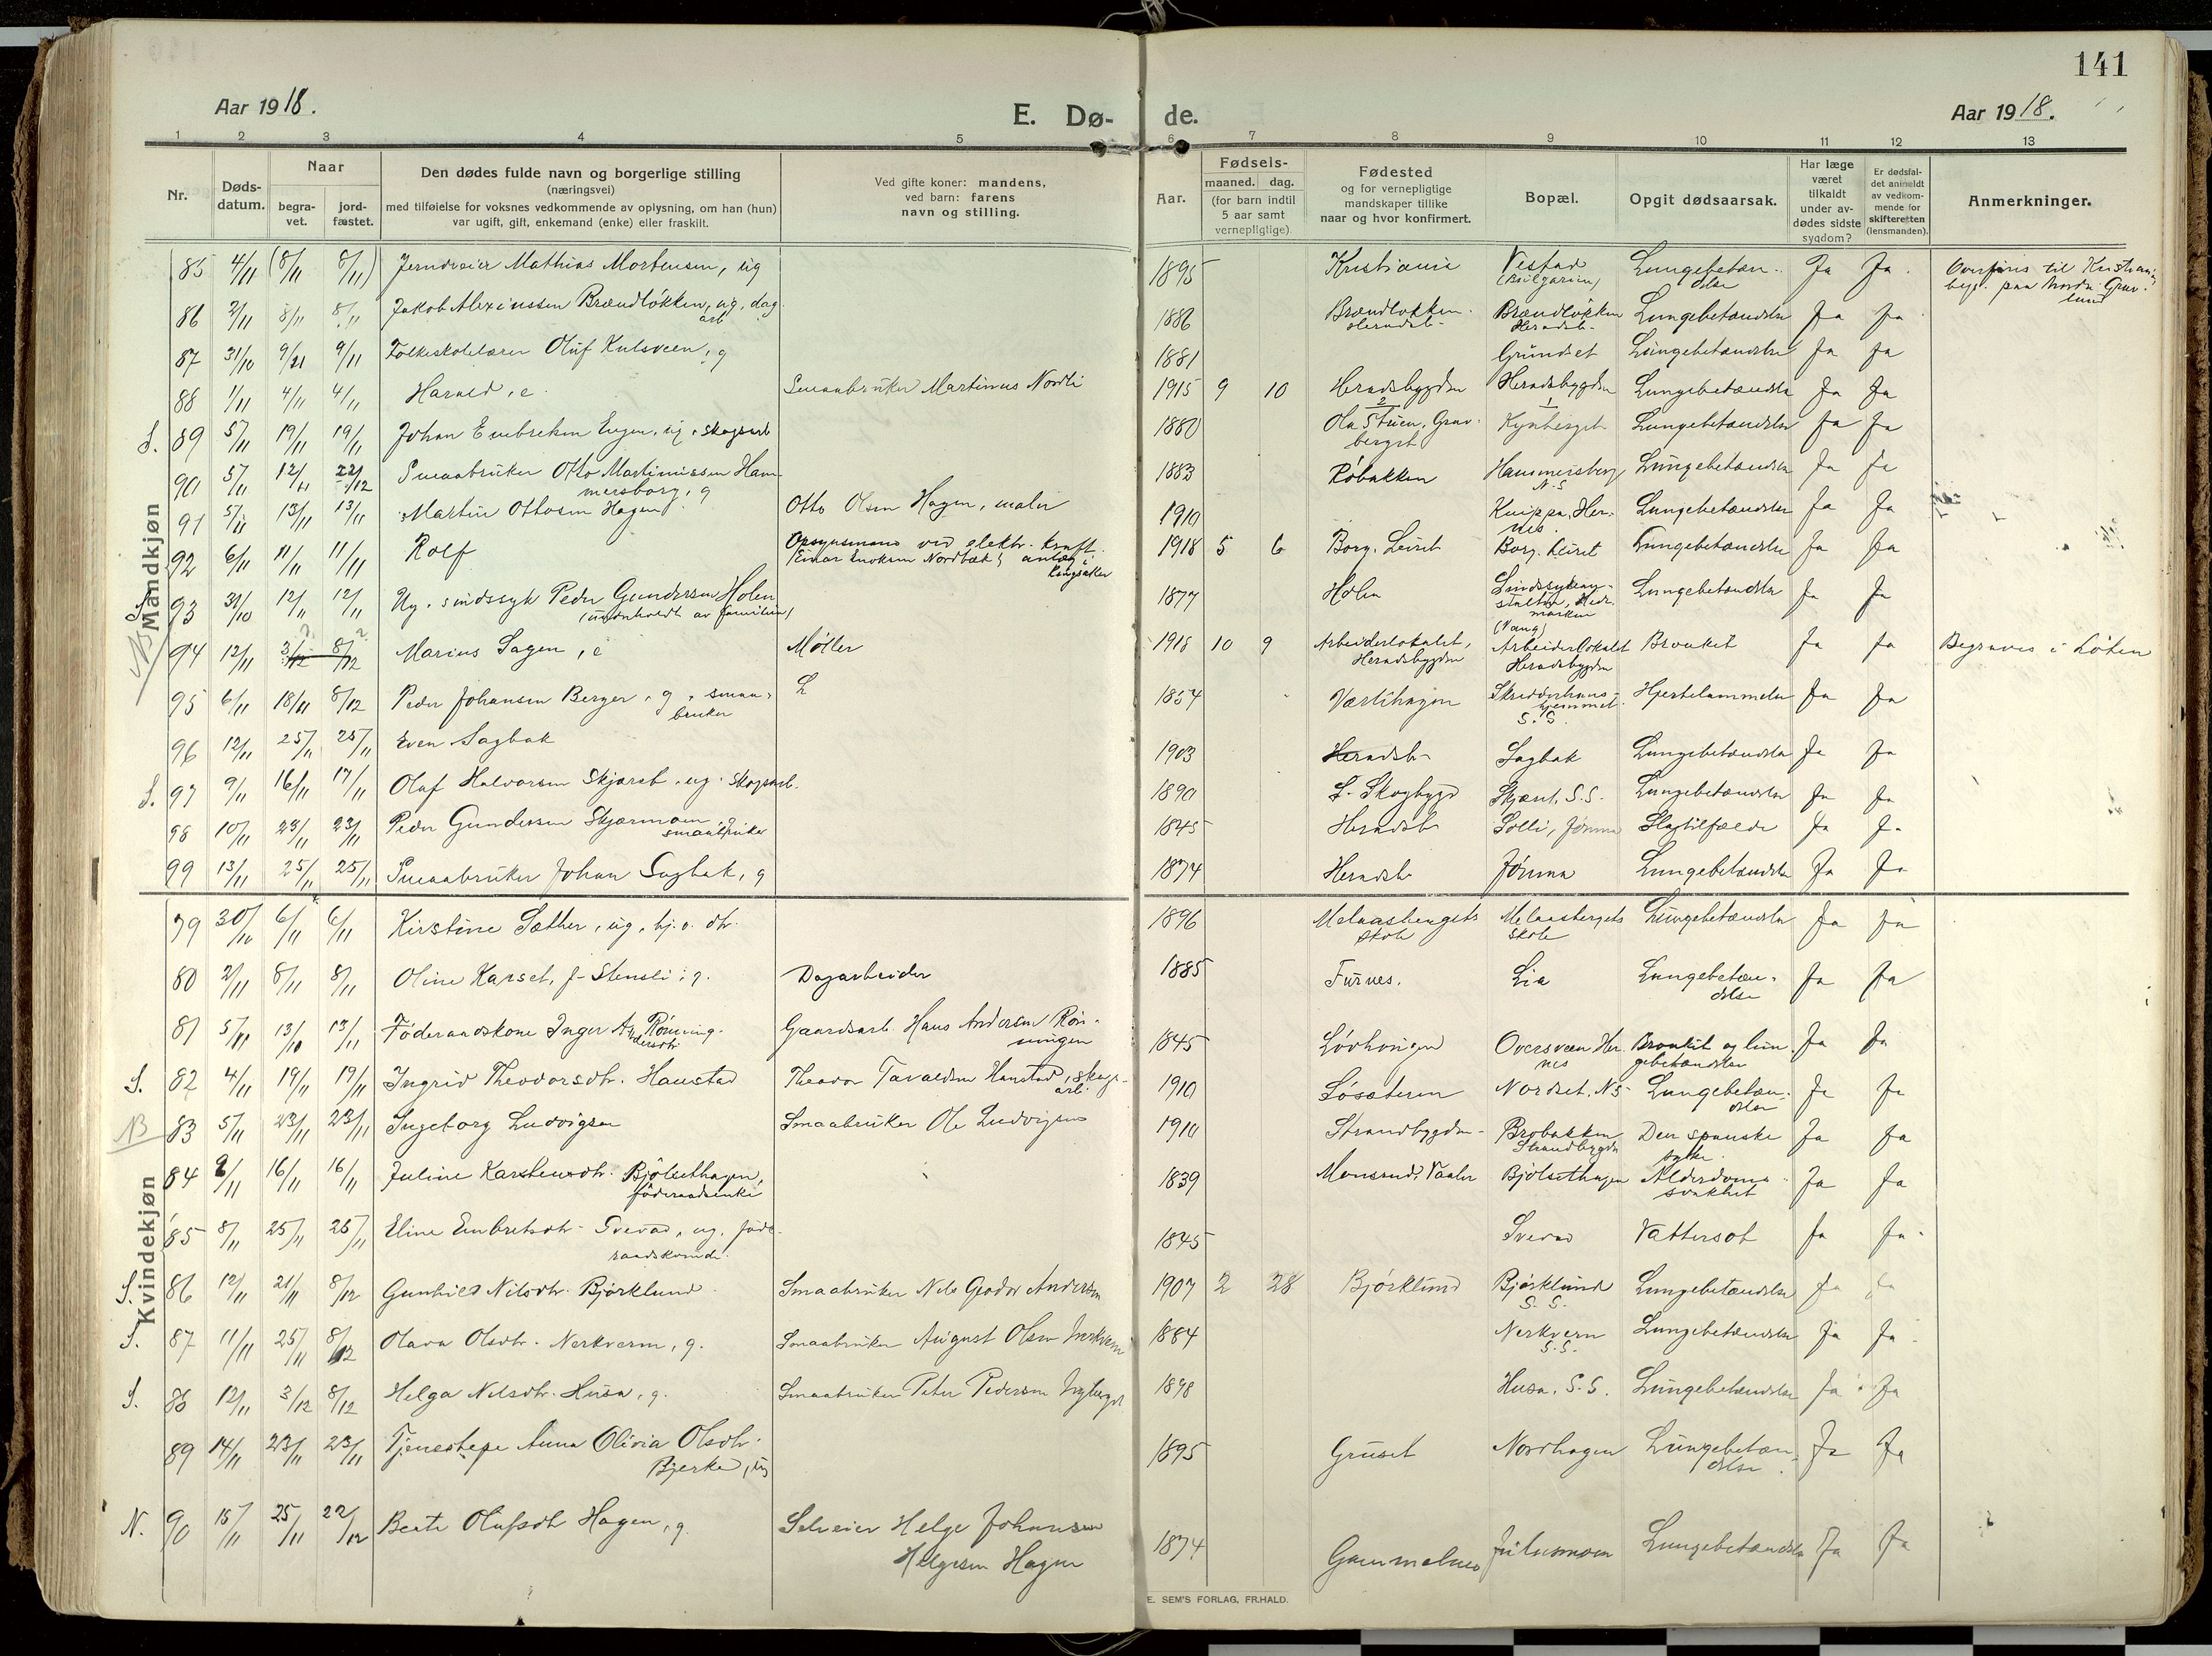 141
Aar 1918.
E. Dø-
de.
Aar 1918.
1 2 3 4 5 6 7 8 9 10 11 12 13
Nr.
Døds-
datum.
Naar
begra-
vet.
jord-
fæstet.
Den dødes fulde navn og borgerlige stilling
(næringsvei)
med tilføielse for voksnes vedkommende av oplysning, om han (hun)
var ugift, gift, enkemand (enke) eller fraskilt.
Ved gifte koner: mandens,
ved barn: farens
navn og stilling.
Aar.
Fødsels-
maaned. dag.
(for barn indtil
5 aar samt
vernepligtige).
Fødested
og for vernepligtige
mandskaper tillike
naar og hvor konfirmert.
Bopæl.
Opgit dødsaarsak.
Har læge
været
tilkaldt
under av-
dødes sidste
sygdom?
Er dødsfal-
det anmeldt
av vedkom-
mende for
skifteretten
(lensmanden).
Anmerkninger.
Mandkjøn
85 4/11 (8/11 8/11) Mathias Mortensen, ug 1895 Kristiania (Bulgarien) Lungebetæn-
delse Ja Ja Overføres til
86 2/11 8/11 8/11 Jakob Alexinssen Brændløkken, ug, dag-
arb 1886 Brændløkken Brændløkken Lungebetændelse Ja Ja
87 31/10 9/11 9/11 Folkeskolelærer Oluf Kulsveen, g 1881 Grundset Lungebetændelse Ja Ja
88 1/11 4/11 4/11 Harald, e Smaabruker Martinus Nordli 1915 9 10 Heradsbygden Heradsbygden Lungebetændelse Ja Ja
S. 89 5/11 19/11 19/11 Johan Embretsen Engen, ug, skogsarb 1880 Grav-
berget Kynberget Lungebetændelse Ja Ja
90 5/11 12/11 22/12 Smaabruker Otto Martiniussen Ham-
mersborg, g 1883 Røbakken Hammersborg
N.S Lungebetændelse Ja Ja
91 5/11 13/11 13/11 Martin Ottosen Hagen Otto Olsen Hagen, maler 1910 Knippa, Her-
nes Lungebetændelse Ja Ja
92 6/11 11/11 11/11 Rolf Opsynsmand ved elektr. kraft-
Einar Enoksen Nordbæk 1918 5 6 Borg, Leiret Borg, Leiret Lungebetændelse Ja Ja
93 31/10 12/11 12/11 Ug. sindssyk Peder Gundersen Holen
(underholdt av familien) 1877 Holen Sindssykean-
stalten, Hede-
marken
(Vang) Lungebetændelse Ja Ja
94 12/11 3/12 8/12 Marius Sagen, e Møller 1918 10 9 Arbeiderlokalet,
Heradsbygden Arbeiderlokalet
Heradsbygden Bronkit Ja Ja Begraves i Løten
95 6/11 18/11 8/12 Peder Johansen Berger, g, smaa-
bruker 1854 Værlihagen S.S. Hjertelammelse Ja Ja
96 12/11 25/11 25/11 Even Sagbak 1903 Heradsb- Sagbak Lungebetændelse Ja Ja
S. 97 9/11 16/11 17/11 Olaf Halvorsen Skjæret, ug. Skogsarb. 1890 S. Skogbygd Skjæret, S.S. Lungebetændelse Ja Ja
98 10/11 23/11 23/11 Peder Gundersen Skjærmoen, g
smaabruker 1845 Heradsb Solli, Jømna Slagtilfælde Ja Ja
99 13/11 25/11 25/11 Smaabruker Johan Sagbak, g 1874 Heradsb Jømna Lungebetændelse Ja Ja
Kvindekjøn
79 30/10 6/11 6/11 Kirstine Sæther, ug, hj. v. dtr. 1896 Melaasbergets
skole Melaasbergets
skole Lungebetændelse Ja Ja
80 2/11 8/11 8/11 Oline Karset, f. Stensli, g. Dagarbeider 1885 Furnes. Lia Lungebetæn-
delse Ja Ja
81 5/11 13/10 13/11 Føderaadskone Inger Andersdtr Rønning. Gaardsarb. Hans Andersen Røn-
ningen 1845 Løvhaugen Oversveen Her-
nes Bronkit og lun-
gebetændelse Ja Ja
S. 82 4/11 19/11 19/11 Ingrid Theodorsdtr. Haustad Theodor Tavaldsen Haustad, skogs-
arb. 1910 Løsæteren Nordset. NS Lungebetæn-
delse Ja Ja
NB 83 5/11 23/11 23/11 Ingeborg Ludvigsen Smaabruker Ole Ludvigsen 1910 Strandbygden Brobakken
Strandbygden Den spanske
syke. Ja Ja
84 9/11 16/11 16/11 Juline Karstensdtr. Bjølsethagen,
føderaadsenke 1839 Vaaler Bjølsethagen Alderdoms-
svakhet Ja Ja
85 8/11 25/11 25/11 Eline Embretsdtr. Svevad, ug. føde-
raadskvinde. 1845 Svevad Vattersot Ja Ja
S. 86 12/11 21/11 8/12 Gunhild Nilsdtr. Bjørklund Smaabruker Nils Andersen 1907 2 28 Bjørklund Bjørklund
S.S. Lungebetændelse Ja Ja
S. 87 11/11 25/11 8/12 Olava Olsdtr. Nerkvern, g. Smaabruker August Olsen Nerkvern 1884 Nerkvern
S.S. Lungebetændelse Ja Ja
S. 88 12/11 3/12 8/12 Helga Nilsdtr. Husa, g. Smaabruker Peter Pedersen 1898 Husa, S.S. Lungebetændelse Ja Ja
89 14/11 23/11 23/11 Tjenestepe Anna Olivia Olsdtr.
Bjerke, ug 1895 Gruset Nordhagen Lungebetæn-
delse. Ja Ja
N. 90 15/11 25/11 22/12 Beate Olufsdtr Hagen, g. Selveier Helge Johansen
Helgesen Hagen 1874 Julusmoen Lungebetændelse Ja Ja
E. SEM'S FORLAG, FR.HALD.